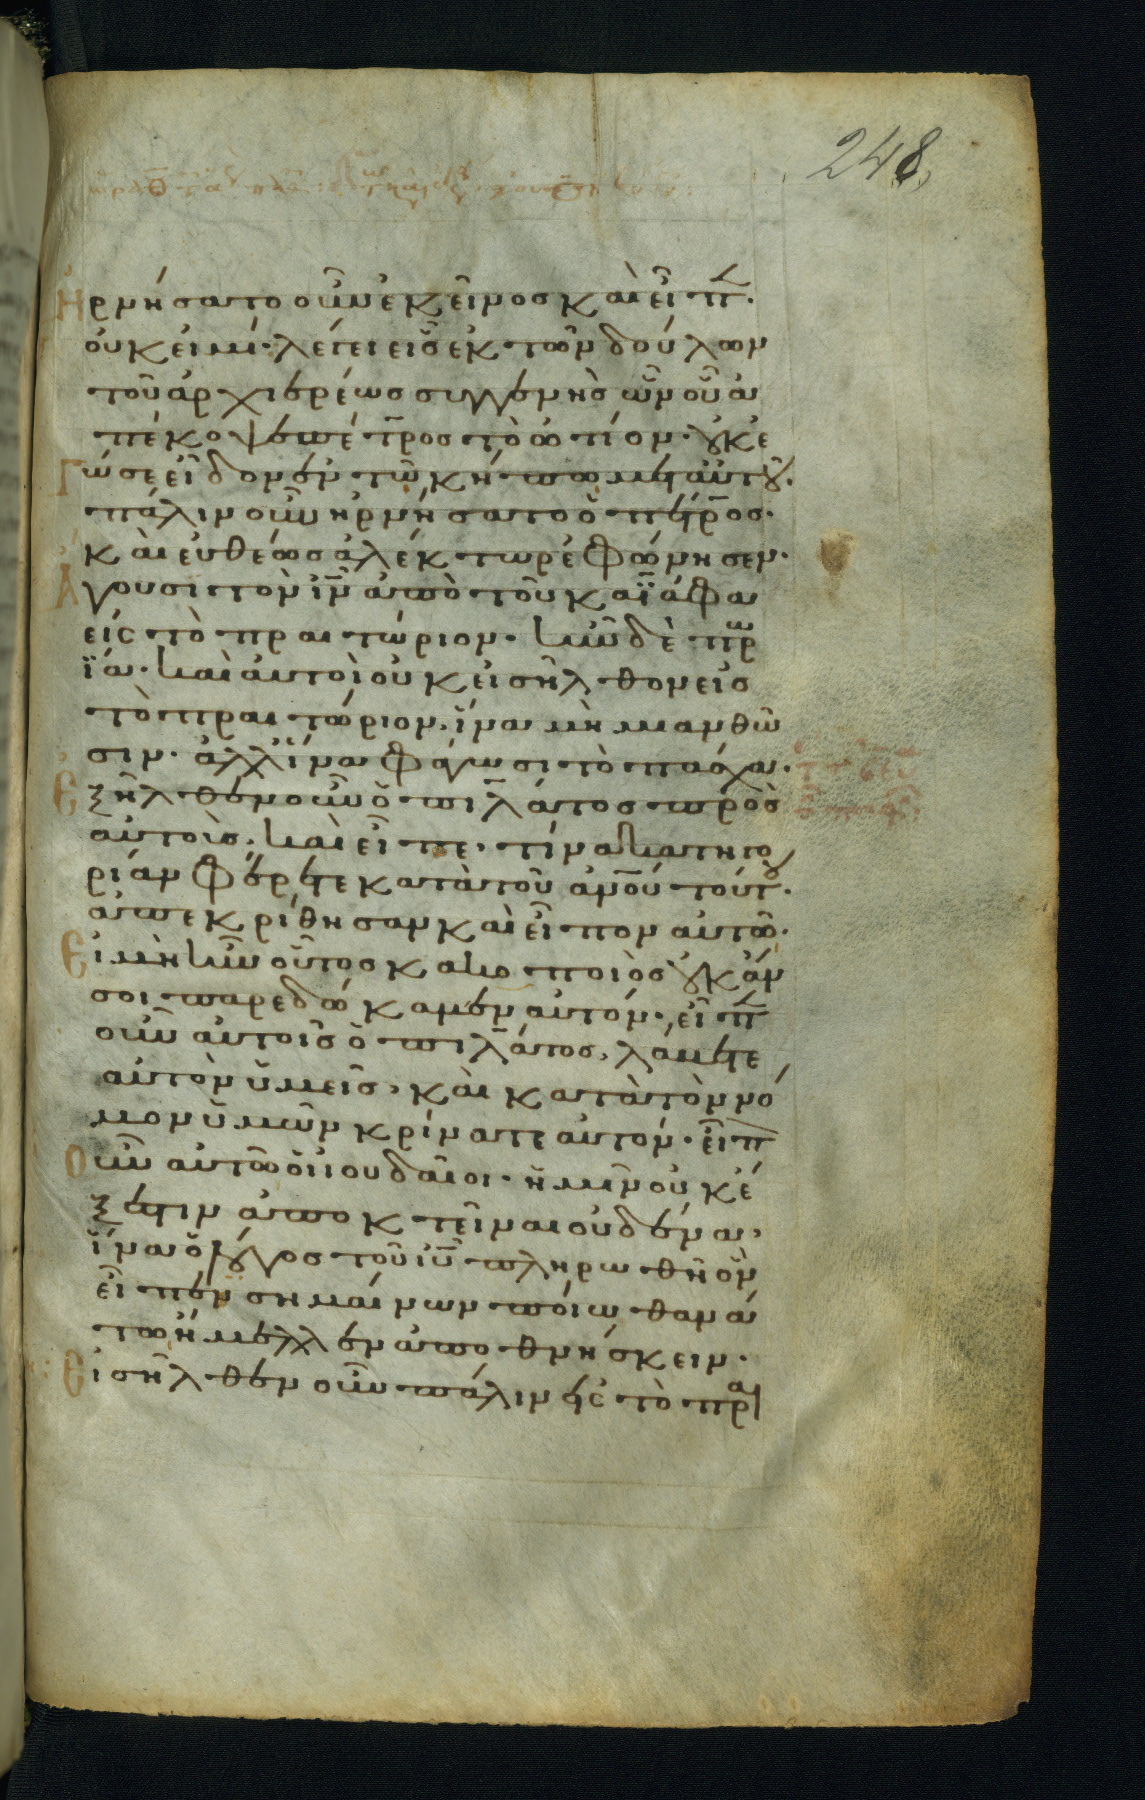 248
Ἠρνήσατο οὖν ἐκεῖνος καὶ εἶπ.
οὐκ εἰμί. λέγει εἷς ἐκ τῶν δούλων
τοῦ ἀρχιερέως συγγενὴς ὢν οὗ ἀ
πέκοψε πέτρος τὸ ὠτίον. οὐκ ἐ
γώ σε εἶδον ἐν τῷ κήπω μετ αὐτοῦ.
πάλιν οὖν ἠρνήσατο ὁ πέτρος.
καὶ εὐθέως ἀλέκτωρ ἐφώνησεν.
Ἄγουσι τὸν ἰν ἀπὸ τοῦ καϊάφα
εἰς τὸ πραιτώριον. ἦν δὲ πρω
ΐα. καὶ αὐτοὶ οὐκ εἰσῆλθον εἰς
τὸ πραιτώριον, ἵνα μὴ μιανθῶ
σιν. ἀλλ ἵνα φάγωσι τὸ πάσχα.
Ἐξῆλθεν οὖν ὁ πιλάτος πρὸς
αὐτοὺς. καὶ εἶπε. τίνα κατηγο
ρίαν φέρετε κατὰ τοῦ ἀνου τούτου.
ἀπεκρίθησαν καὶ εἶπον αὐτῶ.
Εἰ μὴ ἦν οὗτος κακοποιὸς οὐκ ἄν
σοι παρεδώκαμεν αὐτόν. εἶπ
οὖν αὐτοῖς ὁ πιλάτος, λάβετε
αὐτὸν ὑμεῖς, καὶ κατὰ τὸν νό
μον ὑμῶν κρίνατε αὐτόν. εἶπ
Οὖν αὐτῶ οἱ ιουδαῖοι. ἡμῖν οὐκ ἔ
ξεστιν ἀποκτεῖναι οὐδένα,
ἵνα ὁ λόγος τοῦ ιυ πληρωθῆ ὃν
εἶπεν σημαίνων ποίω θανά
τω ἤμελλεν ἀποθνήσκειν.
Εἰσῆλθεν οὖν πάλιν εἰς τὸ πραι